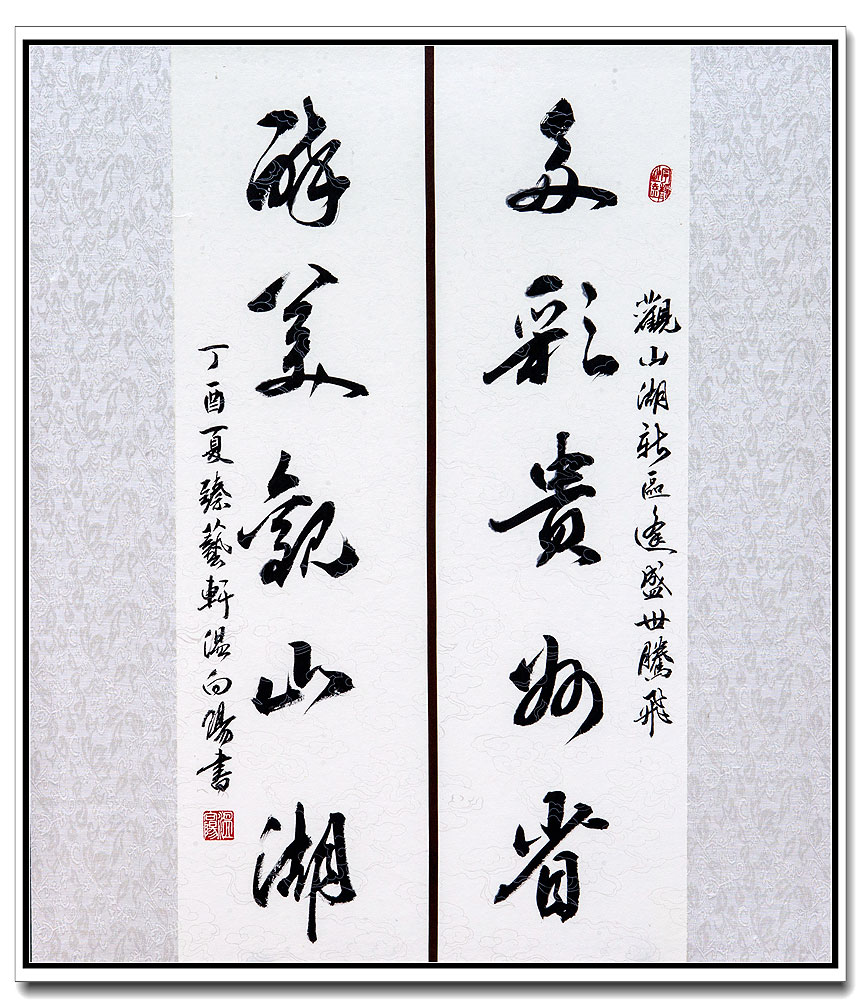 觀山湖新區逢盛世騰飛
多彩貴州省
醉美觀山湖
丁酉夏臻藝軒溫向陽書